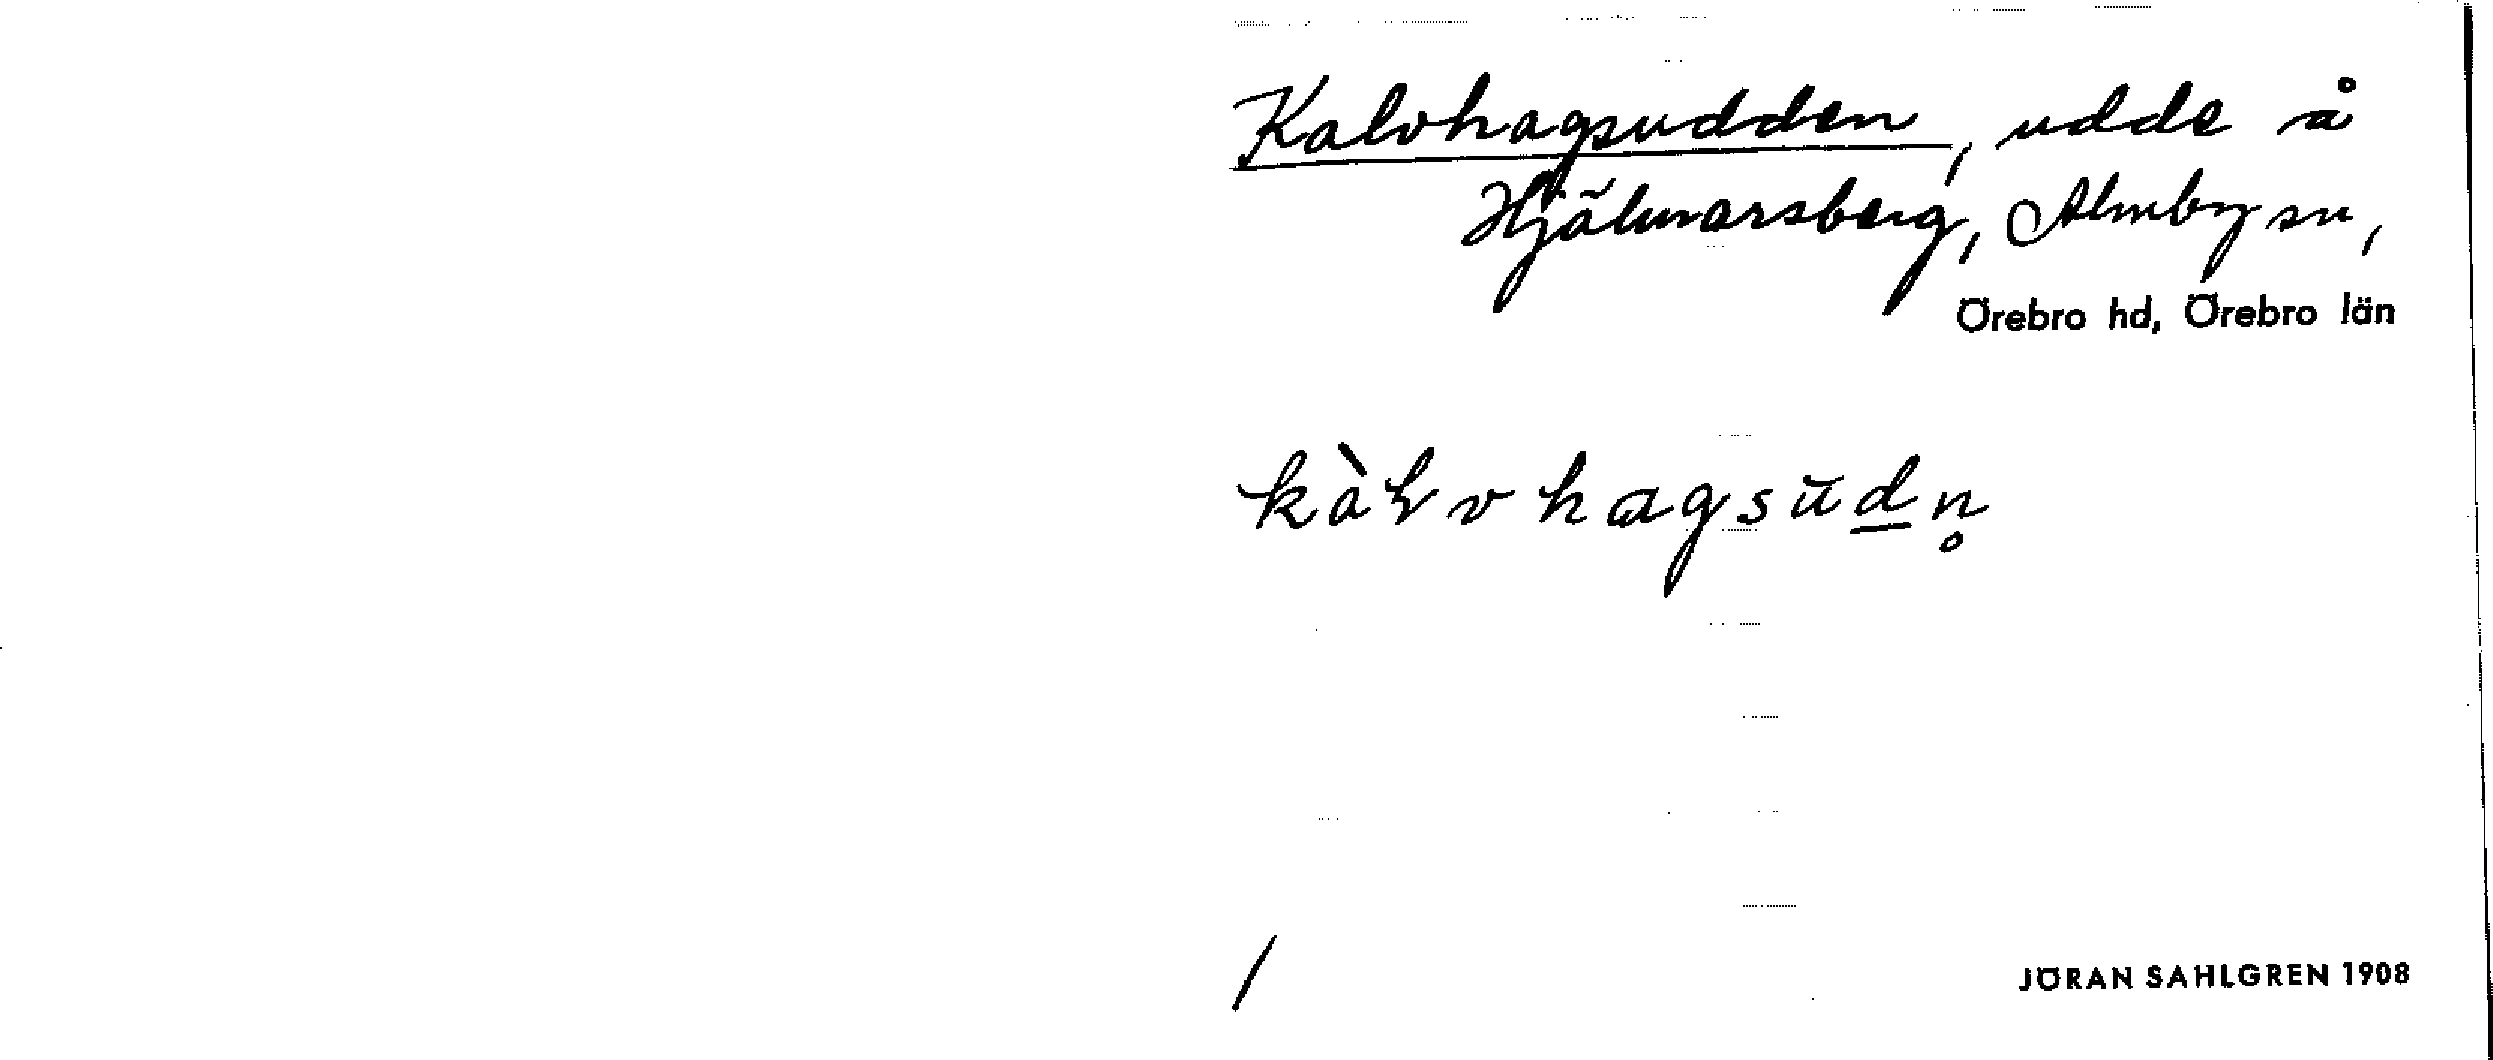 Kalvhagsudden, udde å
Hjälmarsberg, Almby sn,
Örebro hd, Örebro län
kàLvhagsūd̲n̥
/
JÖRAN SAHLGREN 1908